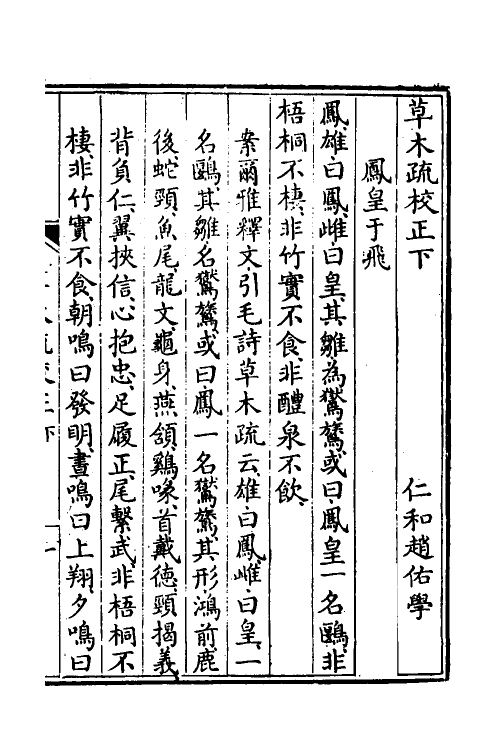 草木疏校正下　仁和趙佑學
鳳皇于飛
鳳雄曰鳳雌曰皇其雛為鸑鷟或曰鳳皇一名鶠非
梧桐不棲非竹實不食非醴泉不飲
案爾雅釋文引毛詩草木疏云雄曰鳳雌曰皇一
名鶠其雛名鸑鷟或曰鳳一名鸑鷟其形鴻前鹿
後蛇頸魚尾龍文龜身燕頷鷄喙首戴德頸揭義
背負仁翼挾信心抱忠足履正尾繫武非梧桐不
棲非竹實不食朝鳴曰發明晝鳴曰上翔夕鳴曰